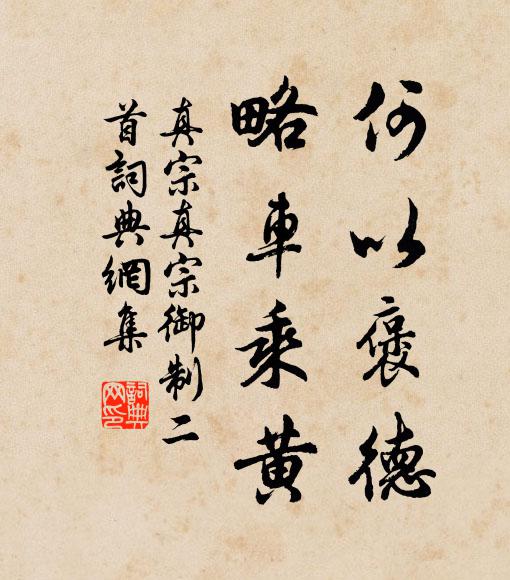 何以褒德
略車乘黃
真宗真宗御制二
首詞典網集
詞典
网印